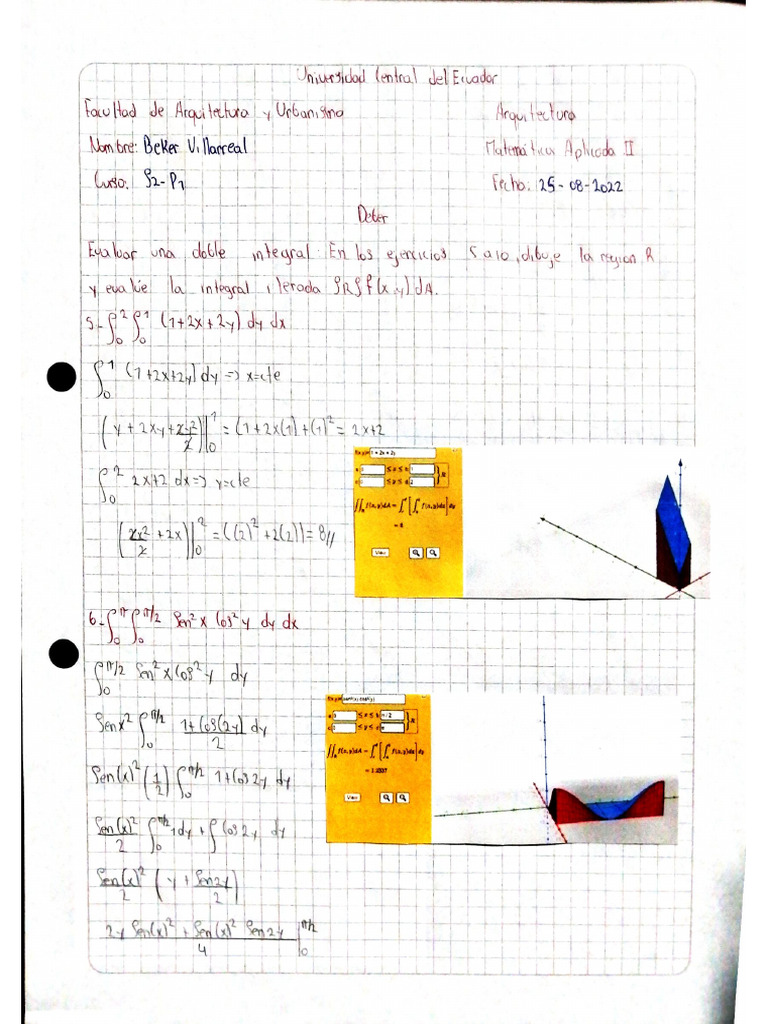 Universidad Central del Ecuador
Facultad de Arquitectura y Urbanismo
Arquitectura
Nombre: Beker Villarreal
Matemática Aplicada II
Curso: S2-P1
Fecha: 25-08-2022
Deber
Evaluar una doble integral: En los ejercicios 5 a 10, dibuje la region R
y evalúe la integral iterada ∫R∫ f(x,y) dA.
5.- ∫₀² ∫₀¹ (1+2x+2y) dy dx
∫₀¹ (1+2x+2y) dy => x=cte
(y + 2xy + 2y²/2)|₀¹ = (1+2x(1)+(1)² = 2x+2
∫₀² 2x+2 dx => y=cte
(2x²/2 + 2x)|₀² = ((2)² + 2(2)) = 8//
f(x,y)= 1 + 2x + 2y
≤ x ≤ b 1
≤ y ≤ d 2
∬R f(x,y)dA = ∫ [∫ f(x,y)dx] dy
= 8
View
6.- ∫₀^π ∫₀^π/2 Sen² x Cos² y dy dx
∫₀^π/2 Sen² x Cos² y dy
Senx² ∫₀^π/2 1+Cos(2y)/2 dy
Sen(x)² (1/2) ∫₀^π/2 1+Cos 2y dy
Sen(x)²/2 ∫₀^π/2 1dy + ∫ Cos 2y dy
Sen(x)²/2 (y + Sen2y/2)
2y Sen(x)² + Sen(x)² Sen 2y/4 |₀^π/2
≤ x ≤ b π/2
≤ y ≤ d π
∬R f(x,y)dA = ∫ [∫ f(x,y)dx] dy
= 1.2337
View